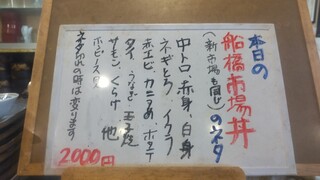 本日の
船橋市場丼
(新市場も同じ)のネタ
中トロ、赤身、白身
ネギとろ、イクラ
赤エビ、カニつめ、ホタテ
タイ、うなぎ、玉子焼
サーモン、くらげ 他
ネタ切れの時は変ります
2000円